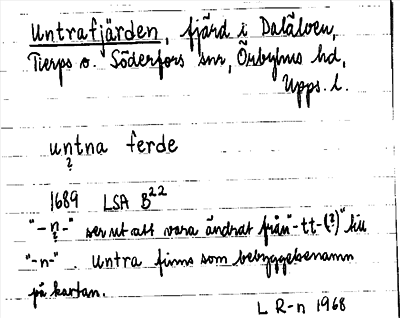 Untrafjärden, fjärd i Dalälven,
Tierps o. Söderfors snr, Örbyhus hd,
Upps. l.
untna ferde
?
1689 LSA B22
"-n-" ser ut att vara ändrat från "-tt-(?)" till
?
"-n-". Untra finns som bebyggelsenamn
på kartan.
L R-n 1968